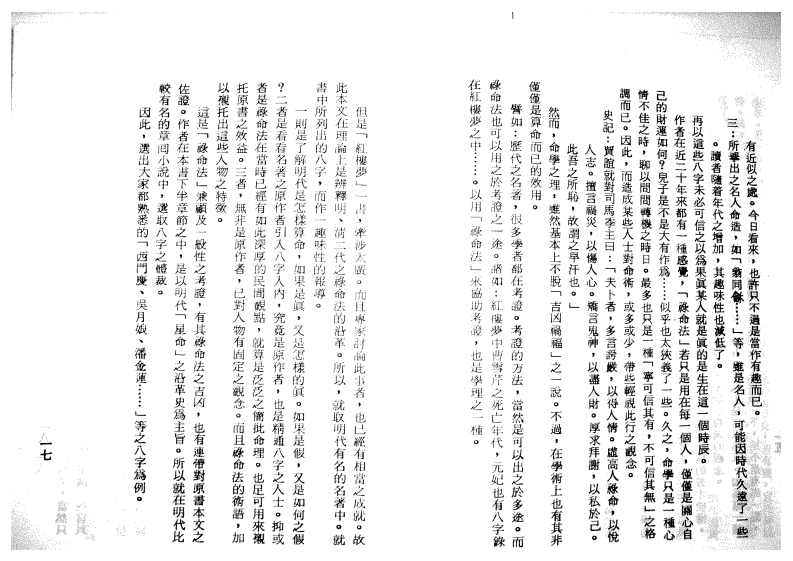 有近似之處。今日看來，也許只不過是當作有趣而已。
三：所舉出之名人命造，如「翁同龢……」等，雖是名人，可能因時代久遠了一些
。讀者隨着年代之增加，其趣味性也減低了。
再以這些八字未必可信之以爲果眞某人就是眞的是生在這一個時辰。
作者在近二十年來都有一種感覺，「祿命法」若只是用在每一個人，僅僅是關心自
己的財運如何？兒子是不是大有作爲……似乎也太狹義了一些。久之，命學只是一種心
情不佳之時，聊以問問轉機之時日。最多也只是一種「寧可信其有，不可信其無」之格
調而已。因此，而造成某些人士對命術，或多或少，帶些輕視此行之觀念。
史記：賈誼就對司馬季主曰：「夫卜者，多言誇嚴，以得人情。虛高人祿命，以悅
人志。擅言禍災，以傷人心。矯言鬼神，以盡人財。厚求拜謝，以私於己。
此吾之所恥，故謂之早汙也。」
然而，命學之理，雖然基本上不脫「吉凶禍福」之一說。不過，在學術上也有其非
僅僅是算命而已的效用。
譬如：歷代之名著，很多學者都在考證。考證的方法，當然是可以出之於多途。而
祿命法也可以用之於考證之一途。諸如：紅樓夢中曹雪芹之死亡年代，元妃也有八字錄
在紅樓夢之中……。以用「祿命法」來協助考證，也是學理之一種。
但是「紅樓夢」一書，牽涉太廣。而且專家討論此事者，也已經有相當之成就。故
此本文在理論上是辨釋明、清二代之祿命法的沿革。所以，就取明代有名的名著中。就
書中所列出的八字，而作一趣味性的報導。
一則是了解明代是怎樣算命，如果是眞，又是怎樣的眞。如果是假，又是如何之假
？二者是看看名著之原作者引入八字入內，究竟是原作者，也是精通八字之人士。抑或
者是祿命法在當時已經有如此深厚的民間觀點，就算是泛泛之簡批命理。也足可用來襯
托原書之效益。三者，無非是原作者，已對人物有固定之觀念。而且祿命法的術語，加
以襯托出這些人物之特徵。
這是「祿命法」兼顧及一般性之考證，有其祿命法之吉凶，也有連帶對原書本文之
佐證。作者在本書下半章節之中，是以明代「星命」之沿革史爲主旨。所以就在明代比
較有名的章囘小說中，選取八字之體裁。
因此，選出大家都熟悉的「西門慶、吳月娘、潘金蓮……」等之八字爲例。
一七